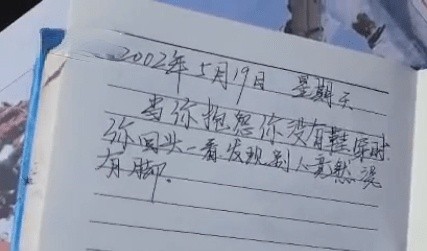 2002年5月19日 星期天
当你抱怨你没有鞋穿时.
你回头一看发现别人竟然没
有脚.